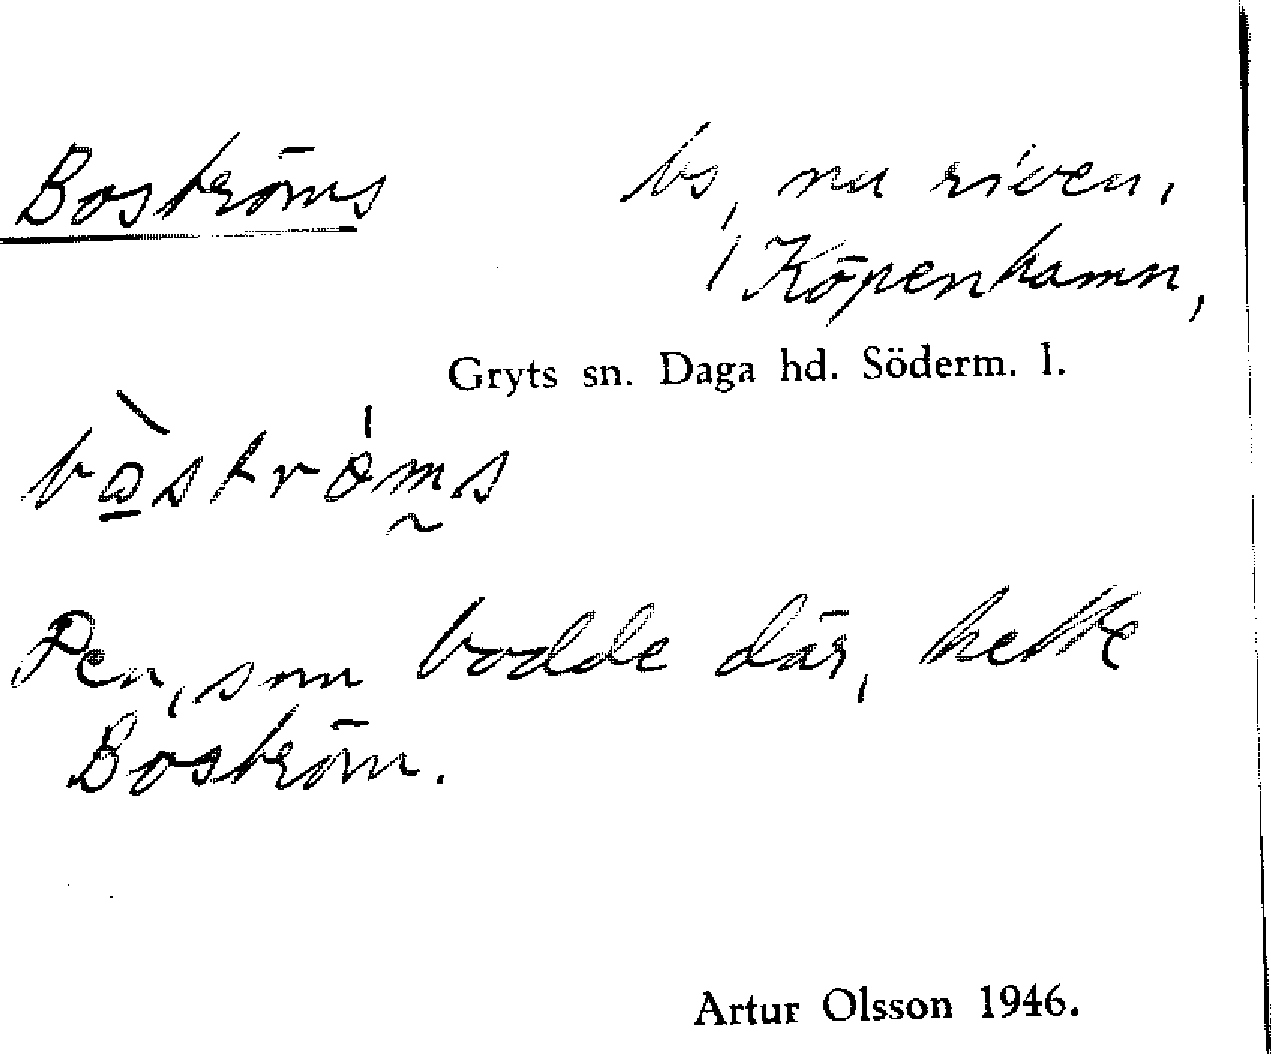 Boströms bs, nu riven,
i Köpenhamn,
Gryts sn. Daga hd. Söderm. l.
bòstrǿms
Den, som bodde där, hette
Boström.
Artur Olsson 1946.